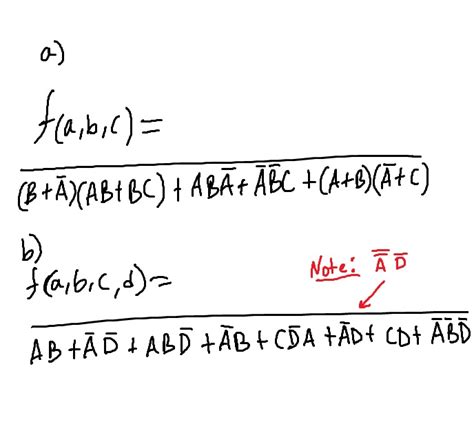 a)
f(a,b,c) =
(B+A̅)(AB+BC) + ABA̅ + A̅B̅C + (A+B)(A̅+C)
b)
f(a,b,c,d) =
Note: A̿ D̅
AB + A̅ D̅ + ABD̅ + A̅B + CD̅A + A̅D + CD + A̅B̅D̅